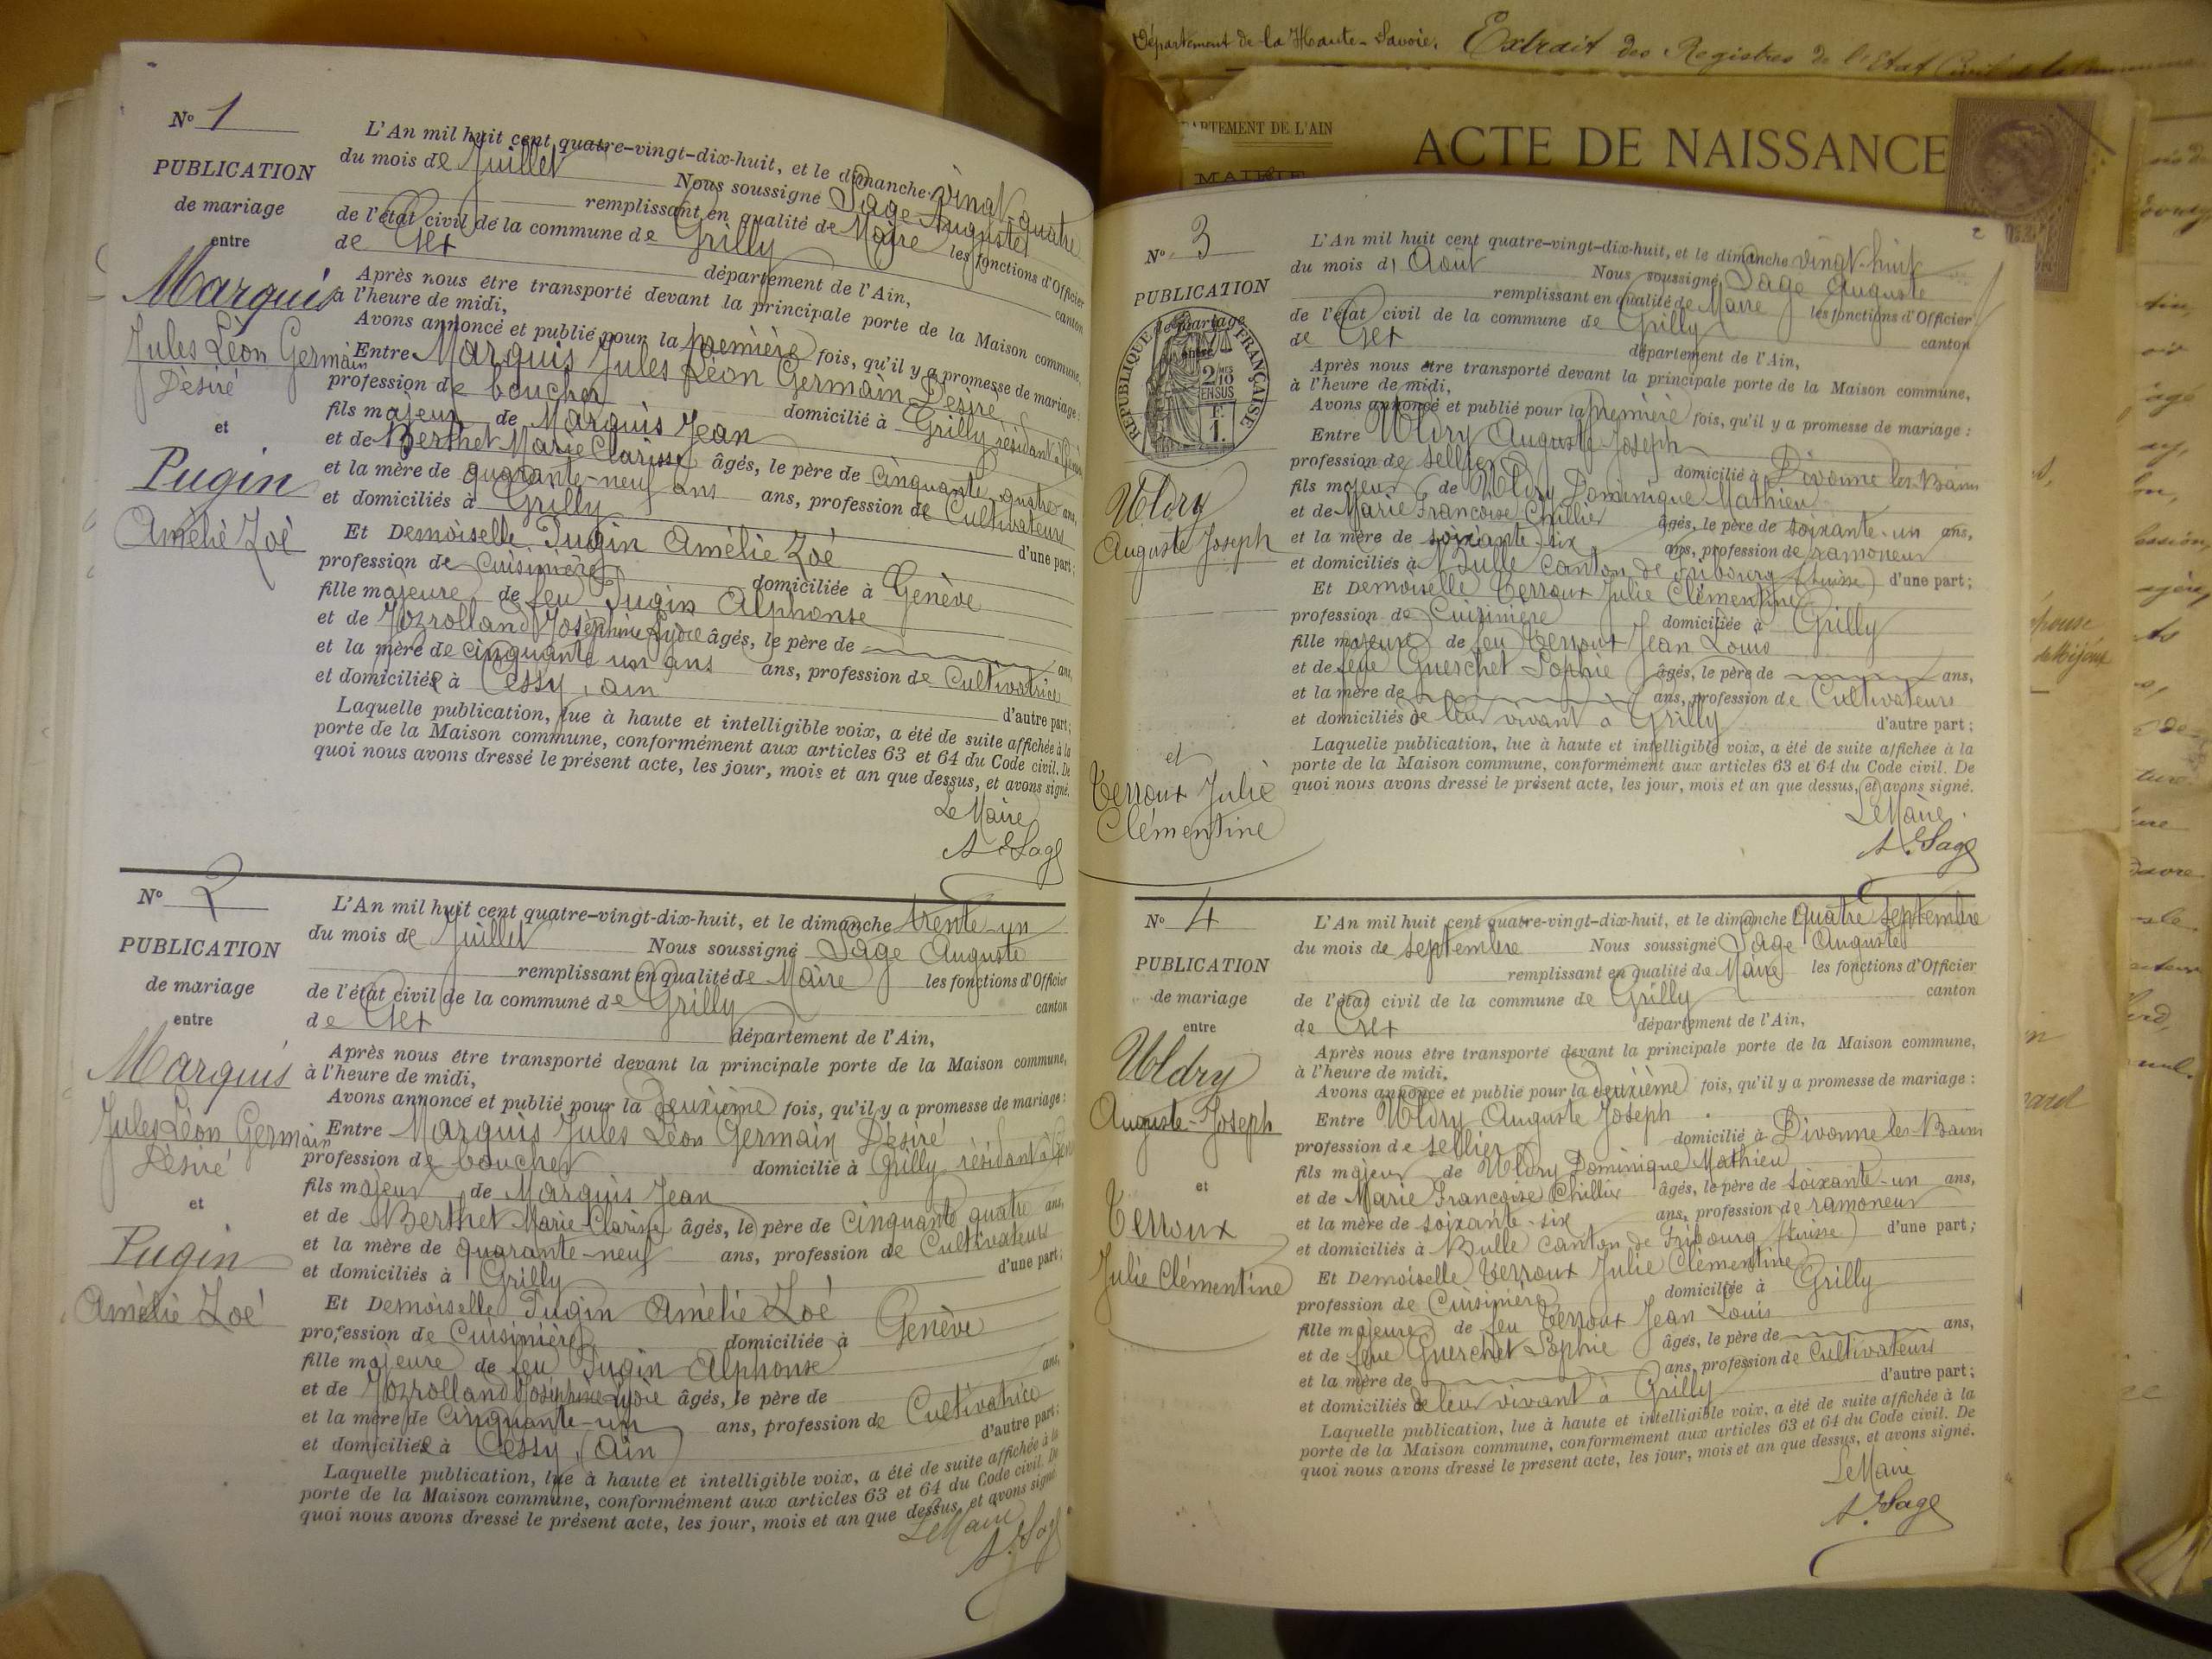 Département de la Haute-Savoie. Extrait des Registres de l'Etat Civil de la
ARTEMENT DE L'AIN
ACTE DE NAISSANCE
MAIRIE
N° 1
PUBLICATION
de mariage
entre
Marquis
Jules Léon Germain
Désiré
et
Pugin
Amélie Zoé
L'An mil huit cent quatre-vingt-dix-huit, et le dimanche vingt-quatre
du mois de Juillet Nous soussigné Sage Auguste
remplissant en qualité de Maire les fonctions d'Officier
de l'état civil de la commune de Grilly canton
de Gex département de l'Ain,
Après nous être transporté devant la principale porte de la Maison commune,
à l'heure de midi,
Avons annoncé et publié pour la première fois, qu'il y a promesse de mariage :
Entre Marquis Jules Léon Germain Désiré
profession de boucher domicilié à Grilly résidant à
fils majeur de Marquis Jean
et de Berthet Marie Clarisse âgés, le père de cinquante quatre ans,
et la mère de quarante-neuf ans ans, profession de Cultivateurs
et domiciliés à Grilly d'une part ;
Et Demoiselle Pugin Amélie Zoé
profession de Cuisinière domiciliée à Genève
fille majeure de feu Pugin Alphonse
et de Joséphine Lydie âgés, le père de ans,
et la mère de cinquante un ans ans, profession de Cultivatrice
et domiciliée à Cessy, ain d'autre part ;
Laquelle publication, lue à haute et intelligible voix, a été de suite affichée à la
porte de la Maison commune, conformément aux articles 63 et 64 du Code civil. De
quoi nous avons dressé le présent acte, les jour, mois et an que dessus, et avons signé.
Le Maire
A. Sage
N° 2
PUBLICATION
de mariage
entre
Marquis
Jules Léon Germain
Désiré
et
Pugin
Amélie Zoé
L'An mil huit cent quatre-vingt-dix-huit, et le dimanche trente-un
du mois de Juillet Nous soussigné Sage Auguste
remplissant en qualité de Maire les fonctions d'Officier
de l'état civil de la commune de Grilly canton
de Gex département de l'Ain,
Après nous être transporté devant la principale porte de la Maison commune,
à l'heure de midi,
Avons annoncé et publié pour la deuxième fois, qu'il y a promesse de mariage :
Entre Marquis Jules Léon Germain Désiré
profession de boucher domicilié à Grilly résidant à
fils majeur de Marquis Jean
et de Berthet Marie Clarisse âgés, le père de cinquante quatre ans,
et la mère de quarante-neuf ans, profession de Cultivateurs
et domiciliés à Grilly d'une part ;
Et Demoiselle Pugin Amélie Zoé
profession de Cuisinière domiciliée à Genève
fille majeure de feu Pugin Alphonse
et de Joséphine Lydie âgés, le père de ans,
et la mère de cinquante-un ans, profession de Cultivatrice
et domiciliée à Cessy, (Ain) d'autre part ;
Laquelle publication, lue à haute et intelligible voix, a été de suite affichée à la
porte de la Maison commune, conformément aux articles 63 et 64 du Code civil. De
quoi nous avons dressé le présent acte, les jour, mois et an que dessus, et avons signé.
Le Maire
A. Sage
2
N° 3
PUBLICATION
de mariage
entre
RÉPUBLIQUE FRANÇAISE
2/10 MES
EN SUS
1 F.
Uldry
Auguste Joseph
et
Terroux Julie
Clémentine
L'An mil huit cent quatre-vingt-dix-huit, et le dimanche vingt-huit
du mois d'Août Nous soussigné Sage Auguste
remplissant en qualité de Maire les fonctions d'Officier
de l'état civil de la commune de Grilly canton
de Gex département de l'Ain,
Après nous être transporté devant la principale porte de la Maison commune,
à l'heure de midi,
Avons annoncé et publié pour la première fois, qu'il y a promesse de mariage :
Entre Uldry Auguste Joseph
profession de sellier domicilié à Divonne les-Bains
fils majeur de Uldry Dominique Mathieu
et de Marie Françoise Chillier âgés, le père de soixante-un ans,
et la mère de soixante-six ans, profession de ramoneur
et domiciliés à Bulle canton de Fribourg (Suisse) d'une part ;
Et Demoiselle Terroux Julie Clémentine
profession de Cuisinière domiciliée à Grilly
fille majeure de feu Terroux Jean Louis
et de feue Guerchet Sophie âgés, le père de ans,
et la mère de ans, profession de Cultivateurs
et domiciliés de leur vivant à Grilly d'autre part ;
Laquelle publication, lue à haute et intelligible voix, a été de suite affichée à la
porte de la Maison commune, conformément aux articles 63 et 64 du Code civil. De
quoi nous avons dressé le présent acte, les jour, mois et an que dessus, et avons signé.
Le Maire
A. Sage
N° 4
PUBLICATION
de mariage
entre
Uldry
Auguste-Joseph
et
Terroux
Julie Clémentine
L'An mil huit cent quatre-vingt-dix-huit, et le dimanche quatre septembre
du mois de septembre Nous soussigné Sage Auguste
remplissant en qualité de Maire les fonctions d'Officier
de l'état civil de la commune de Grilly canton
de Gex département de l'Ain,
Après nous être transporté devant la principale porte de la Maison commune,
à l'heure de midi,
Avons annoncé et publié pour la deuxième fois, qu'il y a promesse de mariage :
Entre Uldry Auguste Joseph
profession de sellier domicilié à Divonne les-Bains
fils majeur de Uldry Dominique Mathieu
et de Marie Françoise Chillier âgés, le père de soixante-un ans,
et la mère de soixante-six ans, profession de ramoneur
et domiciliés à Bulle canton de Fribourg (Suisse) d'une part ;
Et Demoiselle Terroux Julie Clémentine
profession de Cuisinière domiciliée à Grilly
fille majeure de feu Terroux Jean Louis
et de feue Guerchet Sophie âgés, le père de ans,
et la mère de ans, profession de Cultivateurs
et domiciliés de leur vivant à Grilly d'autre part ;
Laquelle publication, lue à haute et intelligible voix, a été de suite affichée à la
porte de la Maison commune, conformément aux articles 63 et 64 du Code civil. De
quoi nous avons dressé le présent acte, les jour, mois et an que dessus, et avons signé.
Le Maire
A. Sage